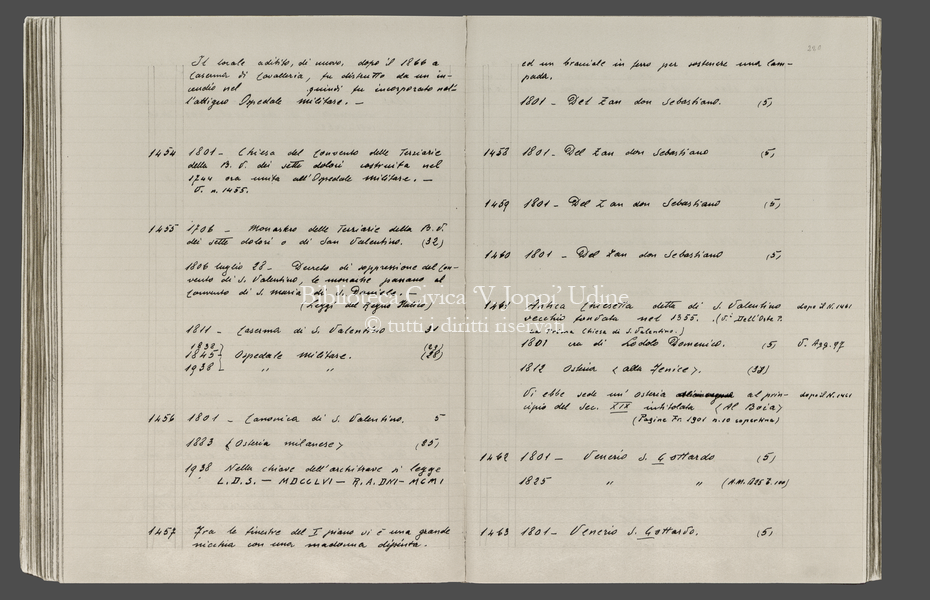 Il locale adibito, di nuovo, dopo il 1866 a
Caserma di Cavalleria, fu distrutto da un in-
cendio nel quindi fu incorporato nel-
l'attiguo Ospedale militare. —
1454 1801 - Chiesa del Convento delle Terziarie
della B. V. dei sette dolori costruita nel
1744 ora unita all'Ospedale militare. —
V. n. 1455.
1455 1706 - Monastero delle Terziarie della B. V.
dei sette dolori o di San Valentino. (32)
1806 luglio 28 - Decreto di soppressione del Con-
vento di S. Valentino, le monache passano al
Convento di S. Maria di S. Daniele. —
(Leggi del Regno Italico)
1811 - Caserma di S. Valentino 31
1838 (29)
1845 - Ospedale militare. (28)
1938 - " "
1456 1801 - Canonica di S. Valentino. 5
1883 (Osteria milanese) (25)
1938 Nella chiave dell'architrave si legge
L. D. S. — MDCCLVI — R. A. DNI - MCMI
1457 Fra le finestre del I piano vi è una grande
nicchia con una madonna dipinta.
281
ed un bracciale in ferro per sostenere una lam-
pada.
1801 - Del Zan don Sebastiano. (5)
1458 1801 - Del Zan don Sebastiano (5)
1459 1801 - Del Zan don Sebastiano (5)
1460 1801 - Del Zan don Sebastiano (5)
1461 Antica Chiesetta detta di S. Valentino dopo il N. 1461
vecchio fondata nel 1355. (V. Dell'Orto 7.
la prima Chiesa di S. Valentino.)
1801 ca di Lodolo Domenico. (5) V. Agg. 97
1812 Osteria (alla Fenice). (37)
Vi ebbe sede un' Osteria al prin- dopo il N. 1461
cipio del sec. XIX intitolata (Al Boia)
(Pagine Fr. 1901 n. 10 copertina)
1462 1801 - Venerio S. Gottardo (5)
1825 " " (A.M. 1825 F. 100)
1463 1801 - Venerio S. Gottardo. (5)
Biblioteca Civica 'V. Joppi' Udine
© tutti i diritti riservati